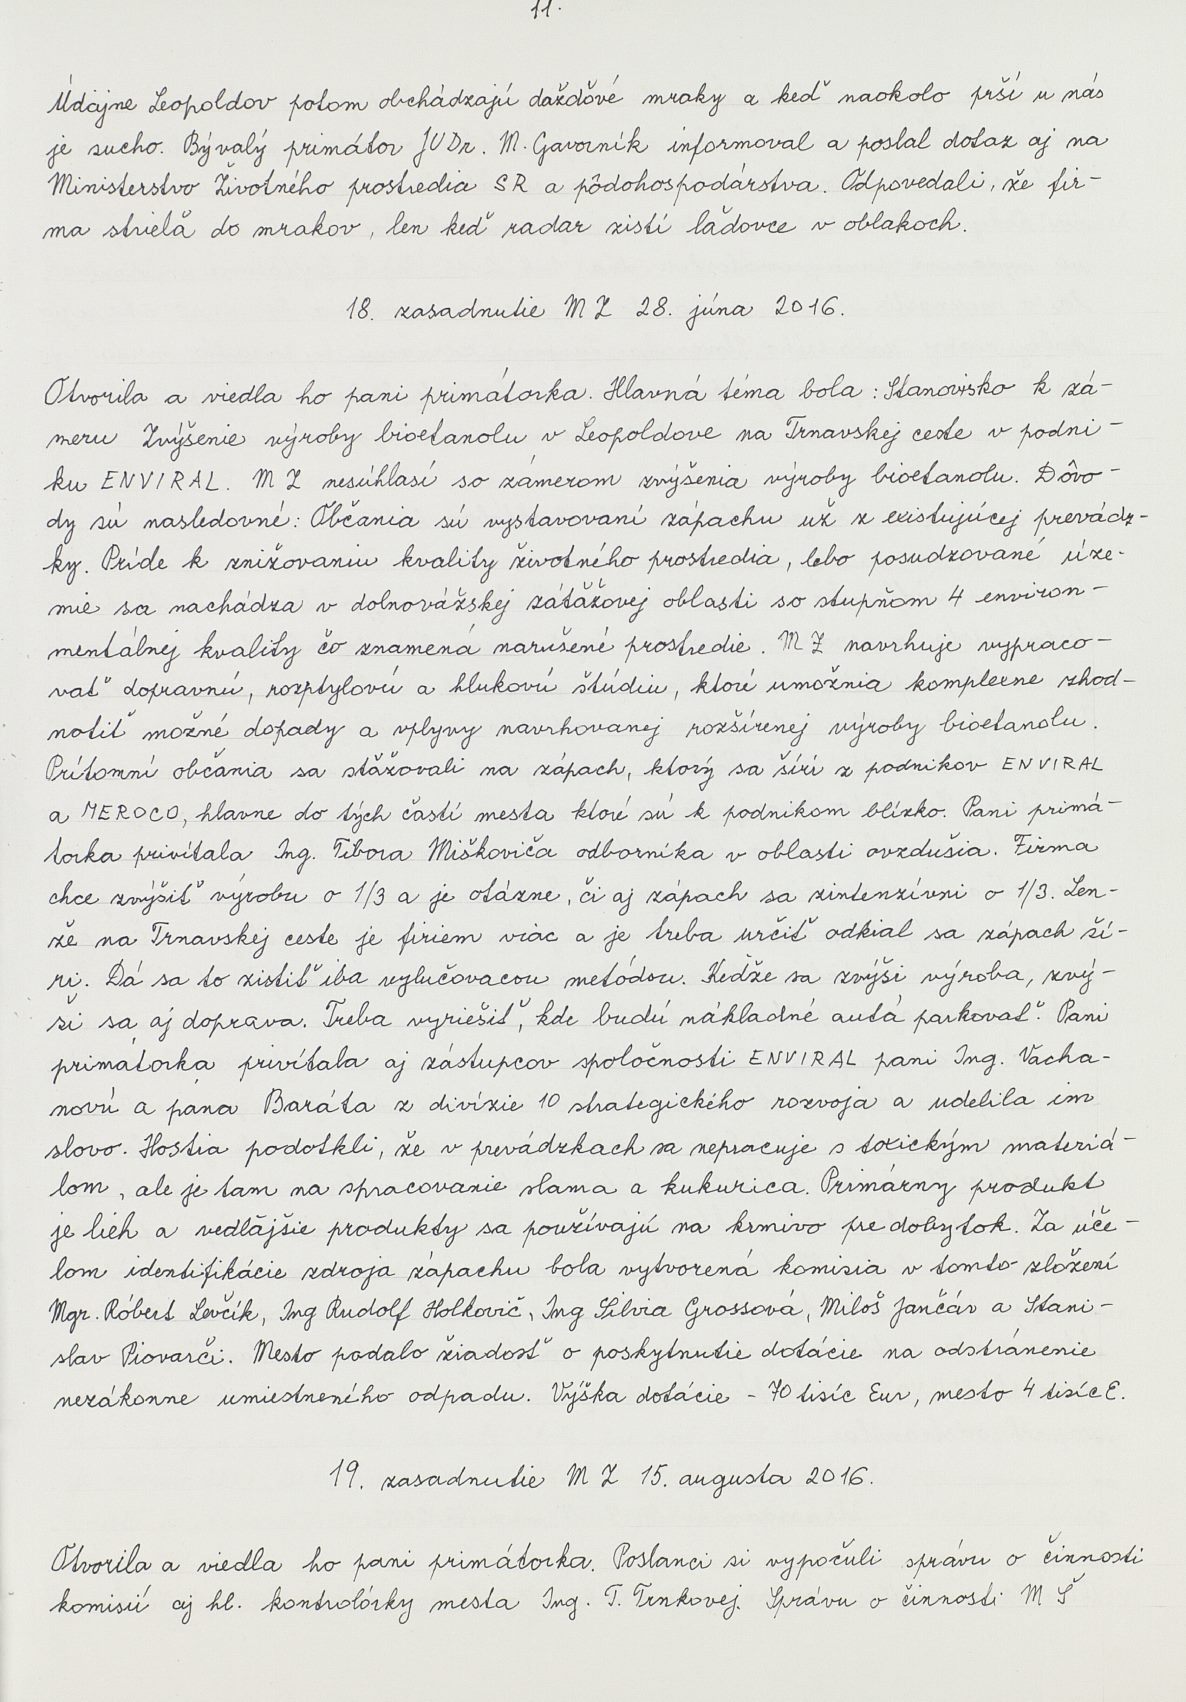 11.
Údajne Leopoldov potom obchádzajú dažďové mraky a keď naokolo prší u nás
je sucho. Bývalý primátor JUDr. M. Gavorník informoval a poslal dotaz aj na
Ministerstvo Životného prostredia SR a pôdohospodárstva. Odpovedali, že fir-
ma strieľa do mrakov, len keď radar zistí ľadovce v oblakoch.
18. zasadnutie MZ 28. júna 2016.
Otvorila a viedla ho pani primátorka. Hlavná téma bola: Stanovisko k zá-
meru Zvýšenie výroby bioetanolu v Leopoldove na Trnavskej ceste v podni-
ku ENVIRAL. MZ nesúhlasí so zámerom zvýšenia výroby bioetanolu. Dôvo-
dy sú nasledovné: Občania sú vystavovaní zápachu už z existujúcej prevádz-
ky. Príde k znižovaniu kvality životného prostredia, lebo posudzované úze-
mie sa nachádza v dolnovážskej záťažovej oblasti so stupňom 4 environ-
mentálnej kvality čo znamená narušené prostredie. MZ navrhuje vypraco-
vať dopravnú, rozptylovú a hlukovú štúdiu, ktoré umožnia komplexne zhod-
notiť možné dopady a vplyvy navrhovanej rozšírenej výroby bioetanolu.
Prítomní občania sa sťažovali na zápach, ktorý sa šíri z podnikov ENVIRAL
a MEROCO, hlavne do tých častí mesta ktoré sú k podnikom blízko. Pani primá-
torka privítala Ing. Tibora Miškoviča odborníka v oblasti ovzdušia. Firma
chce zvýšiť výrobu o 1/3 a je otázne, či aj zápach sa zintenzívni o 1/3. Len-
že na Trnavskej ceste je firiem viac a je treba určiť odkial sa zápach ší-
ri. Dá sa to zistiť iba vylučovacou metódou. Keďže sa zvýši výroba, zvý-
ši sa aj doprava. Treba vyriešiť, kde budú nákladné autá parkovať. Pani
primátorka privítala aj zástupcov spoločnosti ENVIRAL pani Ing. Vacha-
novú a pána Baráta z divízie 10 strategického rozvoja a udelila im
slovo. Hostia podotkli, že v prevádzkach sa nepracuje s toxickým materiá-
lom, ale je tam na spracovanie slama a kukurica. Primárny produkt
je lieh a vedľajšie produkty sa používajú na krmivo pre dobytok. Za úče-
lom identifikácie zdroja zápachu bola vytvorená komisia v tomto zložení
Mgr. Róbert Levčík, Ing Rudolf Holkovič, Ing Silvia Grossová, Miloš Jančár a Stani-
slav Piovarči. Mesto podalo žiadosť o poskytnutie dotácie na odstránenie
nezákonne umiestneného odpadu. Výška dotácie - 70 tisíc Eur, mesto 4 tisíc E.
19. zasadnutie MZ 15. augusta 2016.
Otvorila a viedla ho pani primátorka. Poslanci si vypočuli správu o činnosti
komisií aj hl. kontrolórky mesta Ing. T. Trnkovej. Správu o činnosti MŠ